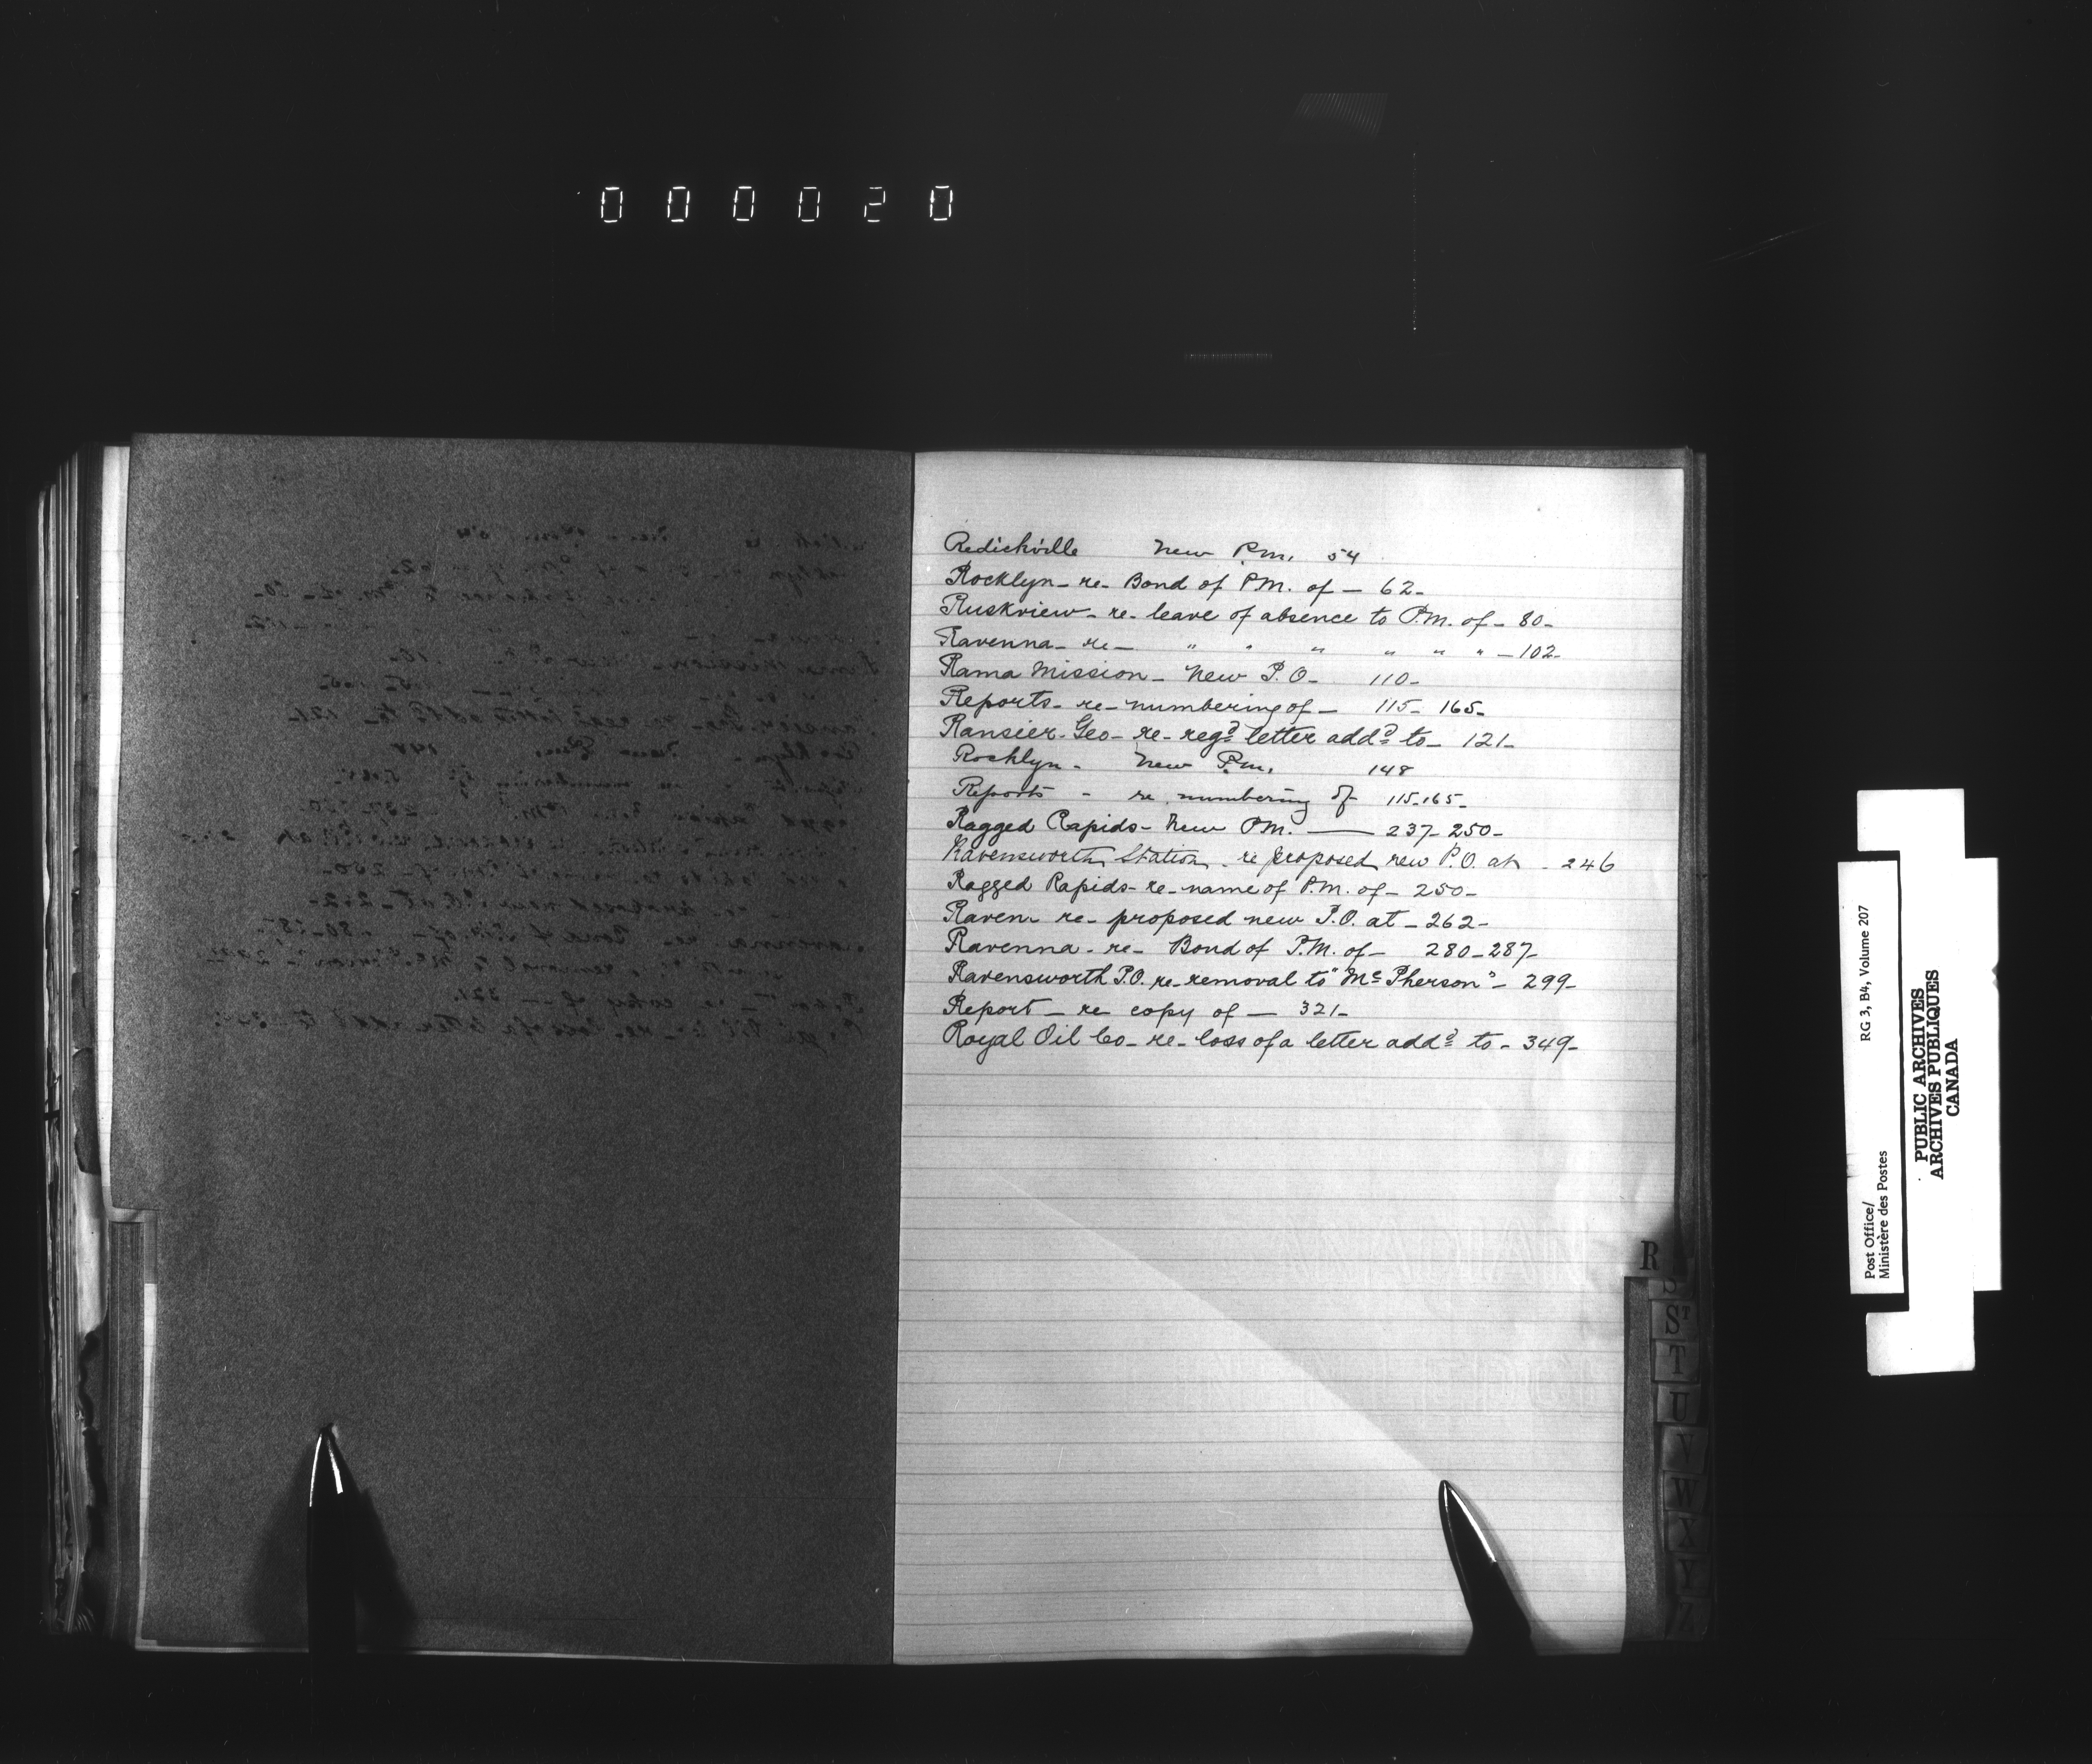 000020
Redickville New P.M. 54
Rocklyn - re - Bond of P.M. of - 62 -
Ruskview - re - leave of absence to P.M. of - 80 -
Ravenna - re - " " " " " " - 102 -
Rama Mission - New P.O. - 110 -
Reports - re - numbering of - 115 - 165 -
Ransier - Geo - re - regd letter addd to - 121 -
Rocklyn - New P.M. 148
Reports - re numbering of 115-165 -
Ragged Rapids - New P.M. — 237 - 250 -
Ravensworth Station - re proposed new P.O. at - 246
Ragged Rapids - re - name of P.M. of - 250 -
Raven - re - proposed new P.O. at - 262 -
Ravenna - re - Bond of P.M. of - 280 - 287 -
Ravensworth P.O. re - removal to "McPherson" - 299 -
Report - re copy of - 321 -
Royal Oil Co - re - loss of a letter addd to - 349 -
R
S
ST
T
U
V
W
X
Y
Z
Post Office/
Ministère des Postes
RG 3, B4, Volume 207
PUBLIC ARCHIVES
ARCHIVES PUBLIQUES
CANADA